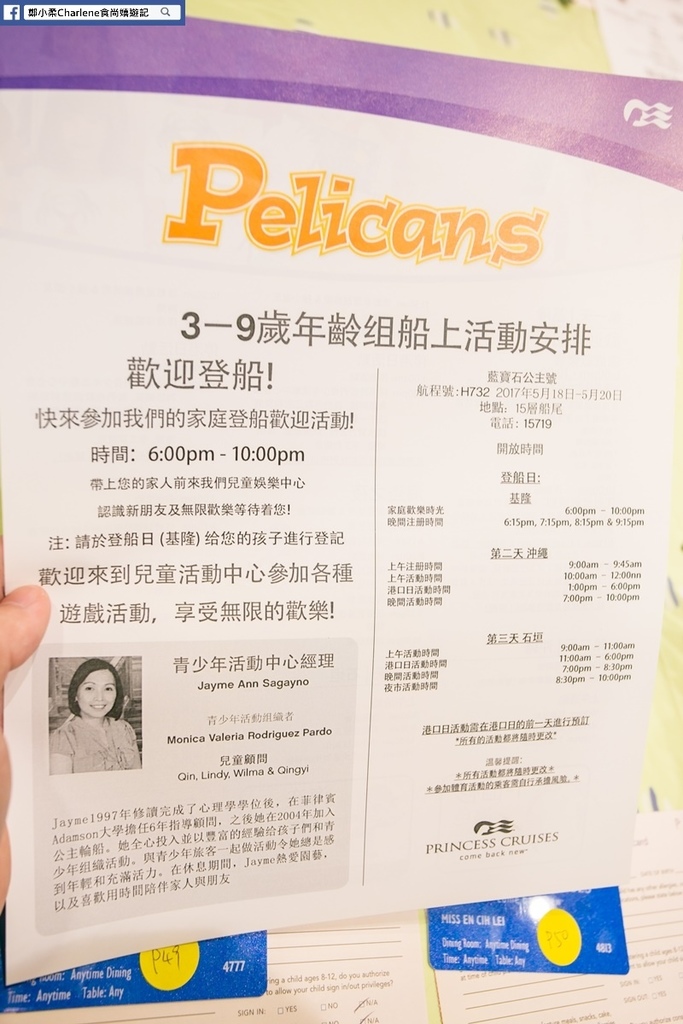 鄭小柔Charlene食尚嬉遊記
Pelicans
3－9歲年齡组船上活動安排
歡迎登船!
快來參加我們的家庭登船歡迎活動!
時間: 6:00pm - 10:00pm
帶上您的家人前來我們兒童娛樂中心
認識新朋友及無限歡樂等待着您!
注: 請於登船日 (基隆) 给您的孩子進行登記
歡迎來到兒童活動中心參加各種
遊戲活動，享受無限的歡樂!
青少年活動中心經理
Jayme Ann Sagayno
青少年活動組織者
Monica Valeria Rodriguez Pardo
兒童顧問
Qin, Lindy, Wilma & Qingyi
Jayme1997年修讀完成了心理學學位後，在菲律賓
Adamson大學擔任6年指導顧問，之後她在2004年加入
公主輪船。她全心投入並以豐富的經驗给孩子們和青
少年組織活動。與青少年旅客一起做活動令她總是感
到年輕和充滿活力。在休息期間，Jayme熱愛園藝，
以及喜歡用時間陪伴家人與朋友
藍寶石公主號
航程號:H732 2017年5月18日-5月20日
地點: 15層船尾
電話: 15719
開放時間
登船日:
基隆
家庭歡樂時光 6:00pm - 10:00pm
晚間注册時間 6:15pm, 7:15pm, 8:15pm & 9:15pm
第二天 沖繩
上午注册時間 9:00am - 9:45am
上午活動時間 10:00am - 12:00nn
港口日活動時間 1:00pm - 6:00pm
晚間活動時間 7:00pm - 10:00pm
第三天 石垣
上午活動時間 9:00am - 11:00am
港口日活動時間 11:00am - 6:00pm
晚間活動時間 7:00pm - 8:30pm
夜市活動時間 8:30pm - 10:00pm
港口日活動需在港口日的前一天進行預訂
*所有的活動都將隨時更改*
温馨提醒:
*所有活動都將隨時更改*
*參加體育活動的乘客需自行承擔風險。*
PRINCESS CRUISES
come back new
MISS EN CIH LEI
Dining Room: Anytime Dining
Time: Anytime Table: Any
P50
4813
Room: Anytime Dining
Time: Anytime Table: Any
P49
4777
ing a child ages 8-12, do you authorize
to allow your child sign in/out privileges?
SIGN IN: YES NO N/A